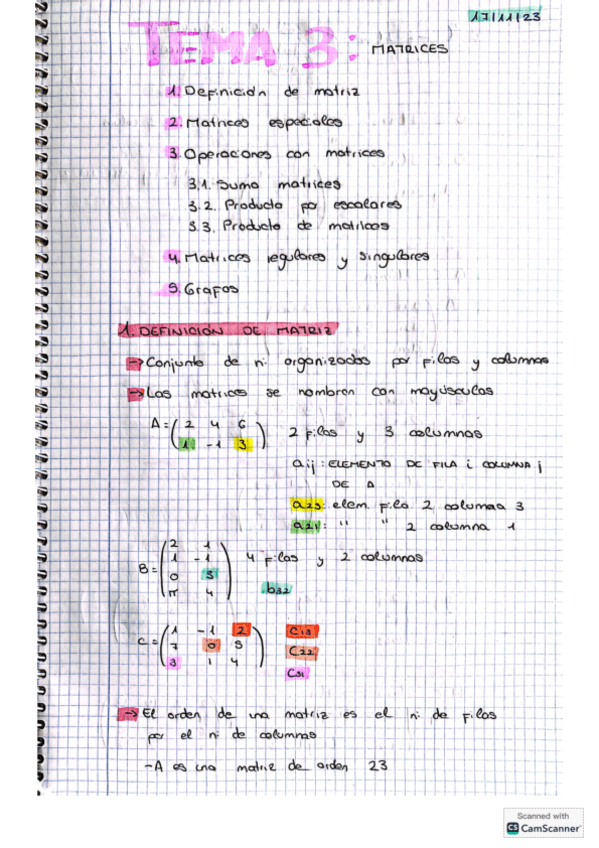 17/11/23
TEMA 3: MATRICES
1. Definición de matriz
2. Matrices especiales
3. Operaciones con matrices
3.1. Suma matrices
3.2. Producto por escalares
3.3. Producto de matrices
4. Matrices regulares y singulares
5. Grafos
1. DEFINICIÓN DE MATRIZ
→ Conjunto de n: organizados por filas y columnas
→ Las matrices se nombran con mayúsculas
A = ( 2 4 6
1 -1 3 ) 2 filas y 3 columnas
aij : ELEMENTO DE FILA i COLUMNA j
DE A
a23: elem. fila 2 columna 3
a21: " " 2 columna 1
B = ( 2 1
1 -1
0 3
π 4 ) 4 filas y 2 columnas
b32
C = ( 1 -1 2
7 0 5
3 1 4 )
C13
C22
C31
→ El orden de una matriz es el n: de filas
por el n: de columnas
- A es una matriz de orden 23
Scanned with
CS CamScanner